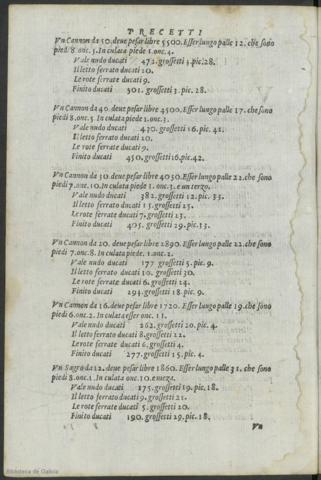 PRECETTI
Vn Cannon da 50. deue pesar libre 5500. Esser lungo palle 12. che sono
piedi 8 onc. 5. In culata piede 1. onc. 4.
Vale nudo ducati 472. grossetti 3. pic. 28.
Il letto ferrato ducati 20.
Le rote ferrate ducati 9.
Finito ducati 501. grossetti 3. pic. 28.
Vn Cannon da 40. deue pesar libre 4500. Esser lungo palle 17. che sono
piedi 8. onc. 5. In culata piede 1. onc. 3.
Vale nudo ducati 420. grossetti 16. pic. 42.
Il letto ferrato ducati 20.
Le rote ferrate ducati 9.
Finito ducati 450. grossetti 16. pic. 42.
Vn Cannon da 30. deue pesar libre 4030. Esser lungo palle 22. che sono
piedi 9. onc. 10. In culata piede 1. onc. 3. e un terzo.
Vale nudo ducati 382. grossetti 12. pic. 33.
Il letto ferrato ducati 15. grossetti 25.
Le rote ferrate ducati 7. grossetti 23.
Finito ducati 405. grossetti 29. pic. 33.
Vn Cannon da 20. deue pesar libre 2890. Esser lungo palle 22. che sono
piedi 7. onc. 8. In culata piede. 1. onc. 2.
Vale nudo ducati 277 grossetti 5. pic. 9.
Il letto ferrato ducati 10. grossetti 30.
Le rote ferrate ducati 6. grossetti 14.
Finito ducati 294. grossetti 18. pic. 9.
Vn Cannon da 16. deue pesar libre 1720. Esser lungo palle 19. che sono
piedi 6. onc. 2. In culata esser onc. 11.
Vale nudo ducati 262. grossetti 20. pic. 4.
Il letto ferrato ducati 8. grossetti 22.
Le rote ferrate ducati 6. grossetti 4.
Finito ducati 277. grossetti 15. pic. 4.
Vn Sagro da 12. deue pesar libre 1860. Esser lungo palle 31. che sono
piedi 8. onc. 1. In culata onc. 10. e meza.
Vale nudo ducati 175. grossetti 19. pic. 18.
Il letto ferrato ducati 9. grossetti 21.
Le rote ferrate ducati 5. grossetti 20.
Finito ducati 190. grossetti 29. pic. 18.
Vn
Biblioteca de Galicia